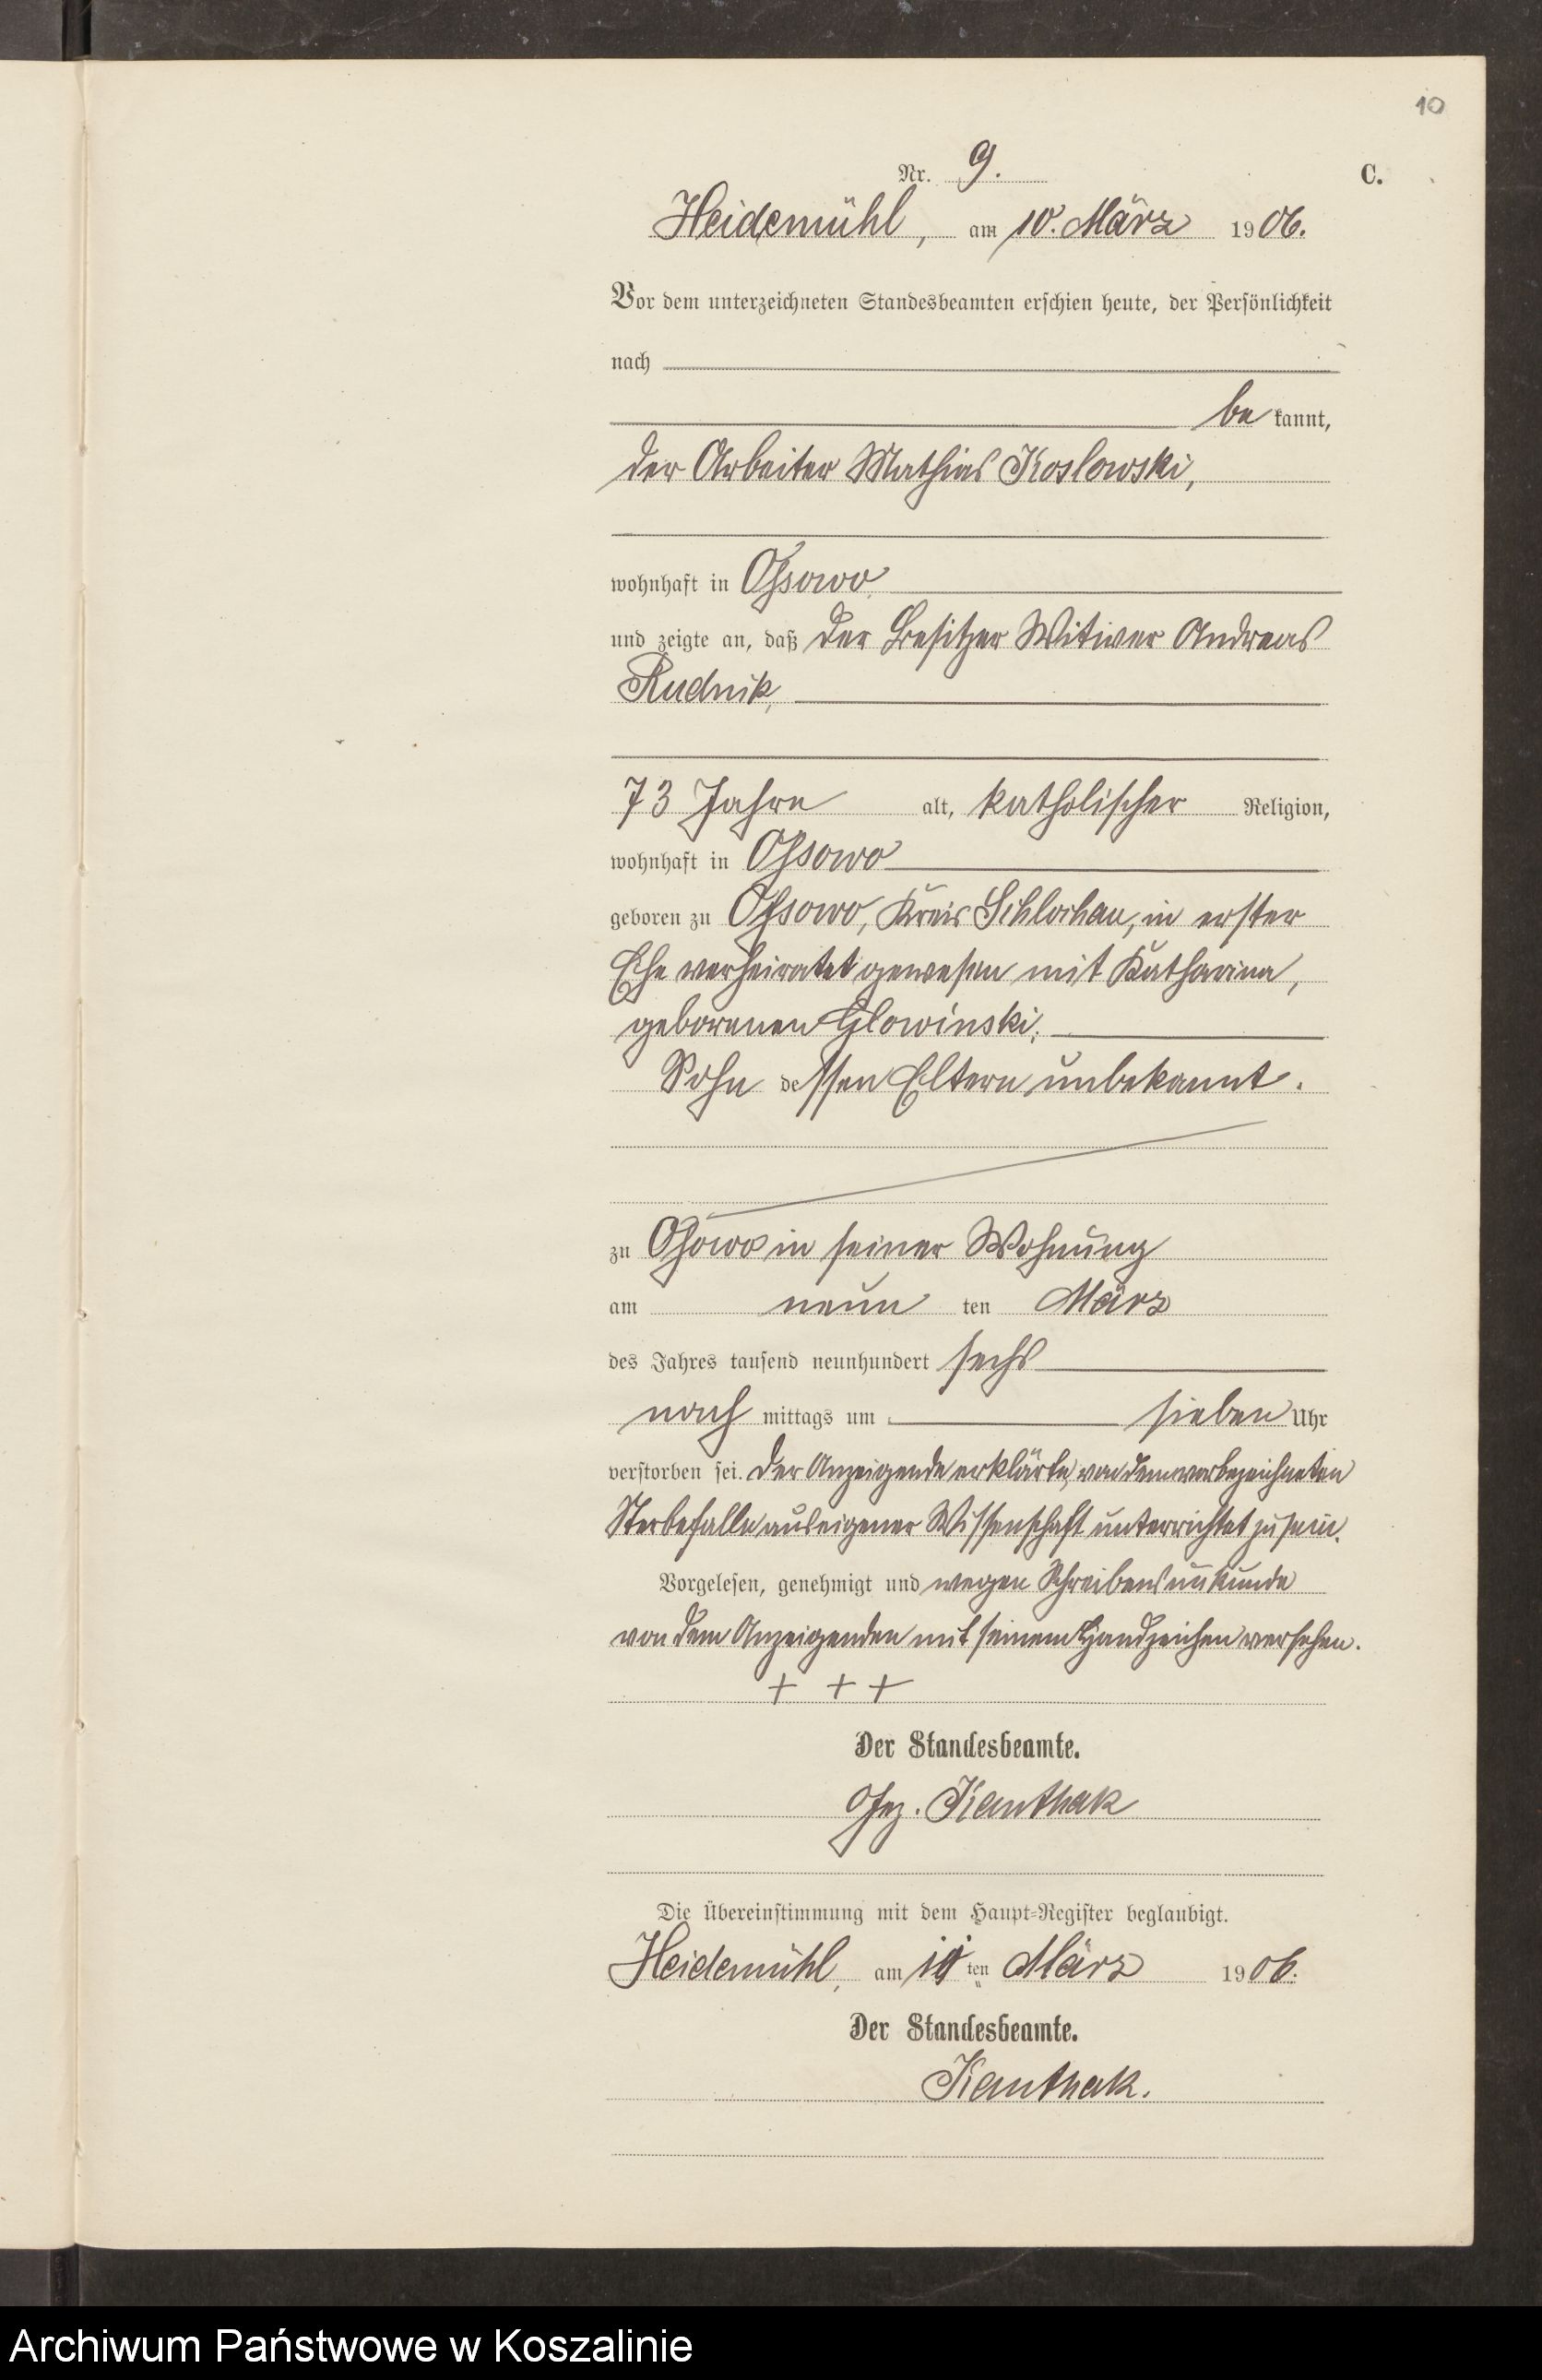 10
Nr. 9.
C.
Heidemühl, am 10. März 1906.
Vor dem unterzeichneten Standesbeamten erschien heute, der Persönlichkeit
nach
be kannt,
der Arbeiter Mathias Koslowski,
wohnhaft in Ossowo
und zeigte an, daß der Besitzer Witwer Andreas
Rudnik,
73 Jahre alt, katholischer Religion,
wohnhaft in Ossowo
geboren zu Ossowo, Kreis Schlochau, in erster
Ehe verheiratet gewesen mit Katharina,
geborenen Glowinski,
Sohn dessen Eltern unbekannt.
zu Ossowo in seiner Wohnung
am neun ten März
des Jahres tausend neunhundert sechs
nach mittags um sieben Uhr
verstorben sei. Der Anzeigende erklärte, von dem vorbezeichneten
Sterbefalle aus eigener Wissenschaft unterrichtet zu sein.
Vorgelesen, genehmigt und wegen Schreibensunkunde
von dem Anzeigenden mit seinem Handzeichen versehen.
+ + +
Der Standesbeamte.
Gez. Kanthak
Die Übereinstimmung mit dem Haupt-Register beglaubigt.
Heidemühl, am 10 ten März 1906.
Der Standesbeamte.
Kanthak.
Archiwum Państwowe w Koszalinie